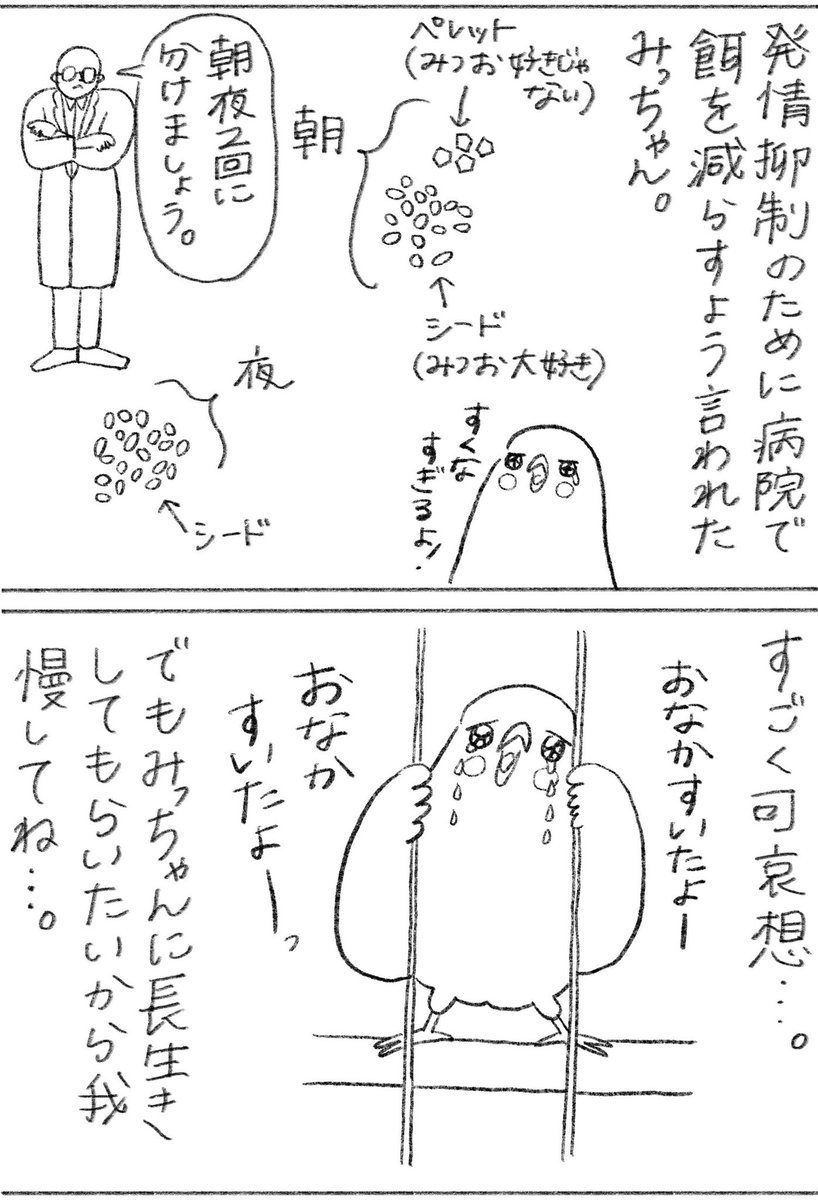 発情抑制のために病院で
餌を減らすよう言われた
みっちゃん。
ペレット
(みつお好きじゃ
ない)
朝
シード
(みつお大好き)
朝夜2回に
分けましょう。
夜
シード
すくな
すぎるよ!
すごく可哀想…。
おなかすいたよー
おなか
すいたよーっ
でもみっちゃんに長生き
してもらいたいから我
慢してね…。